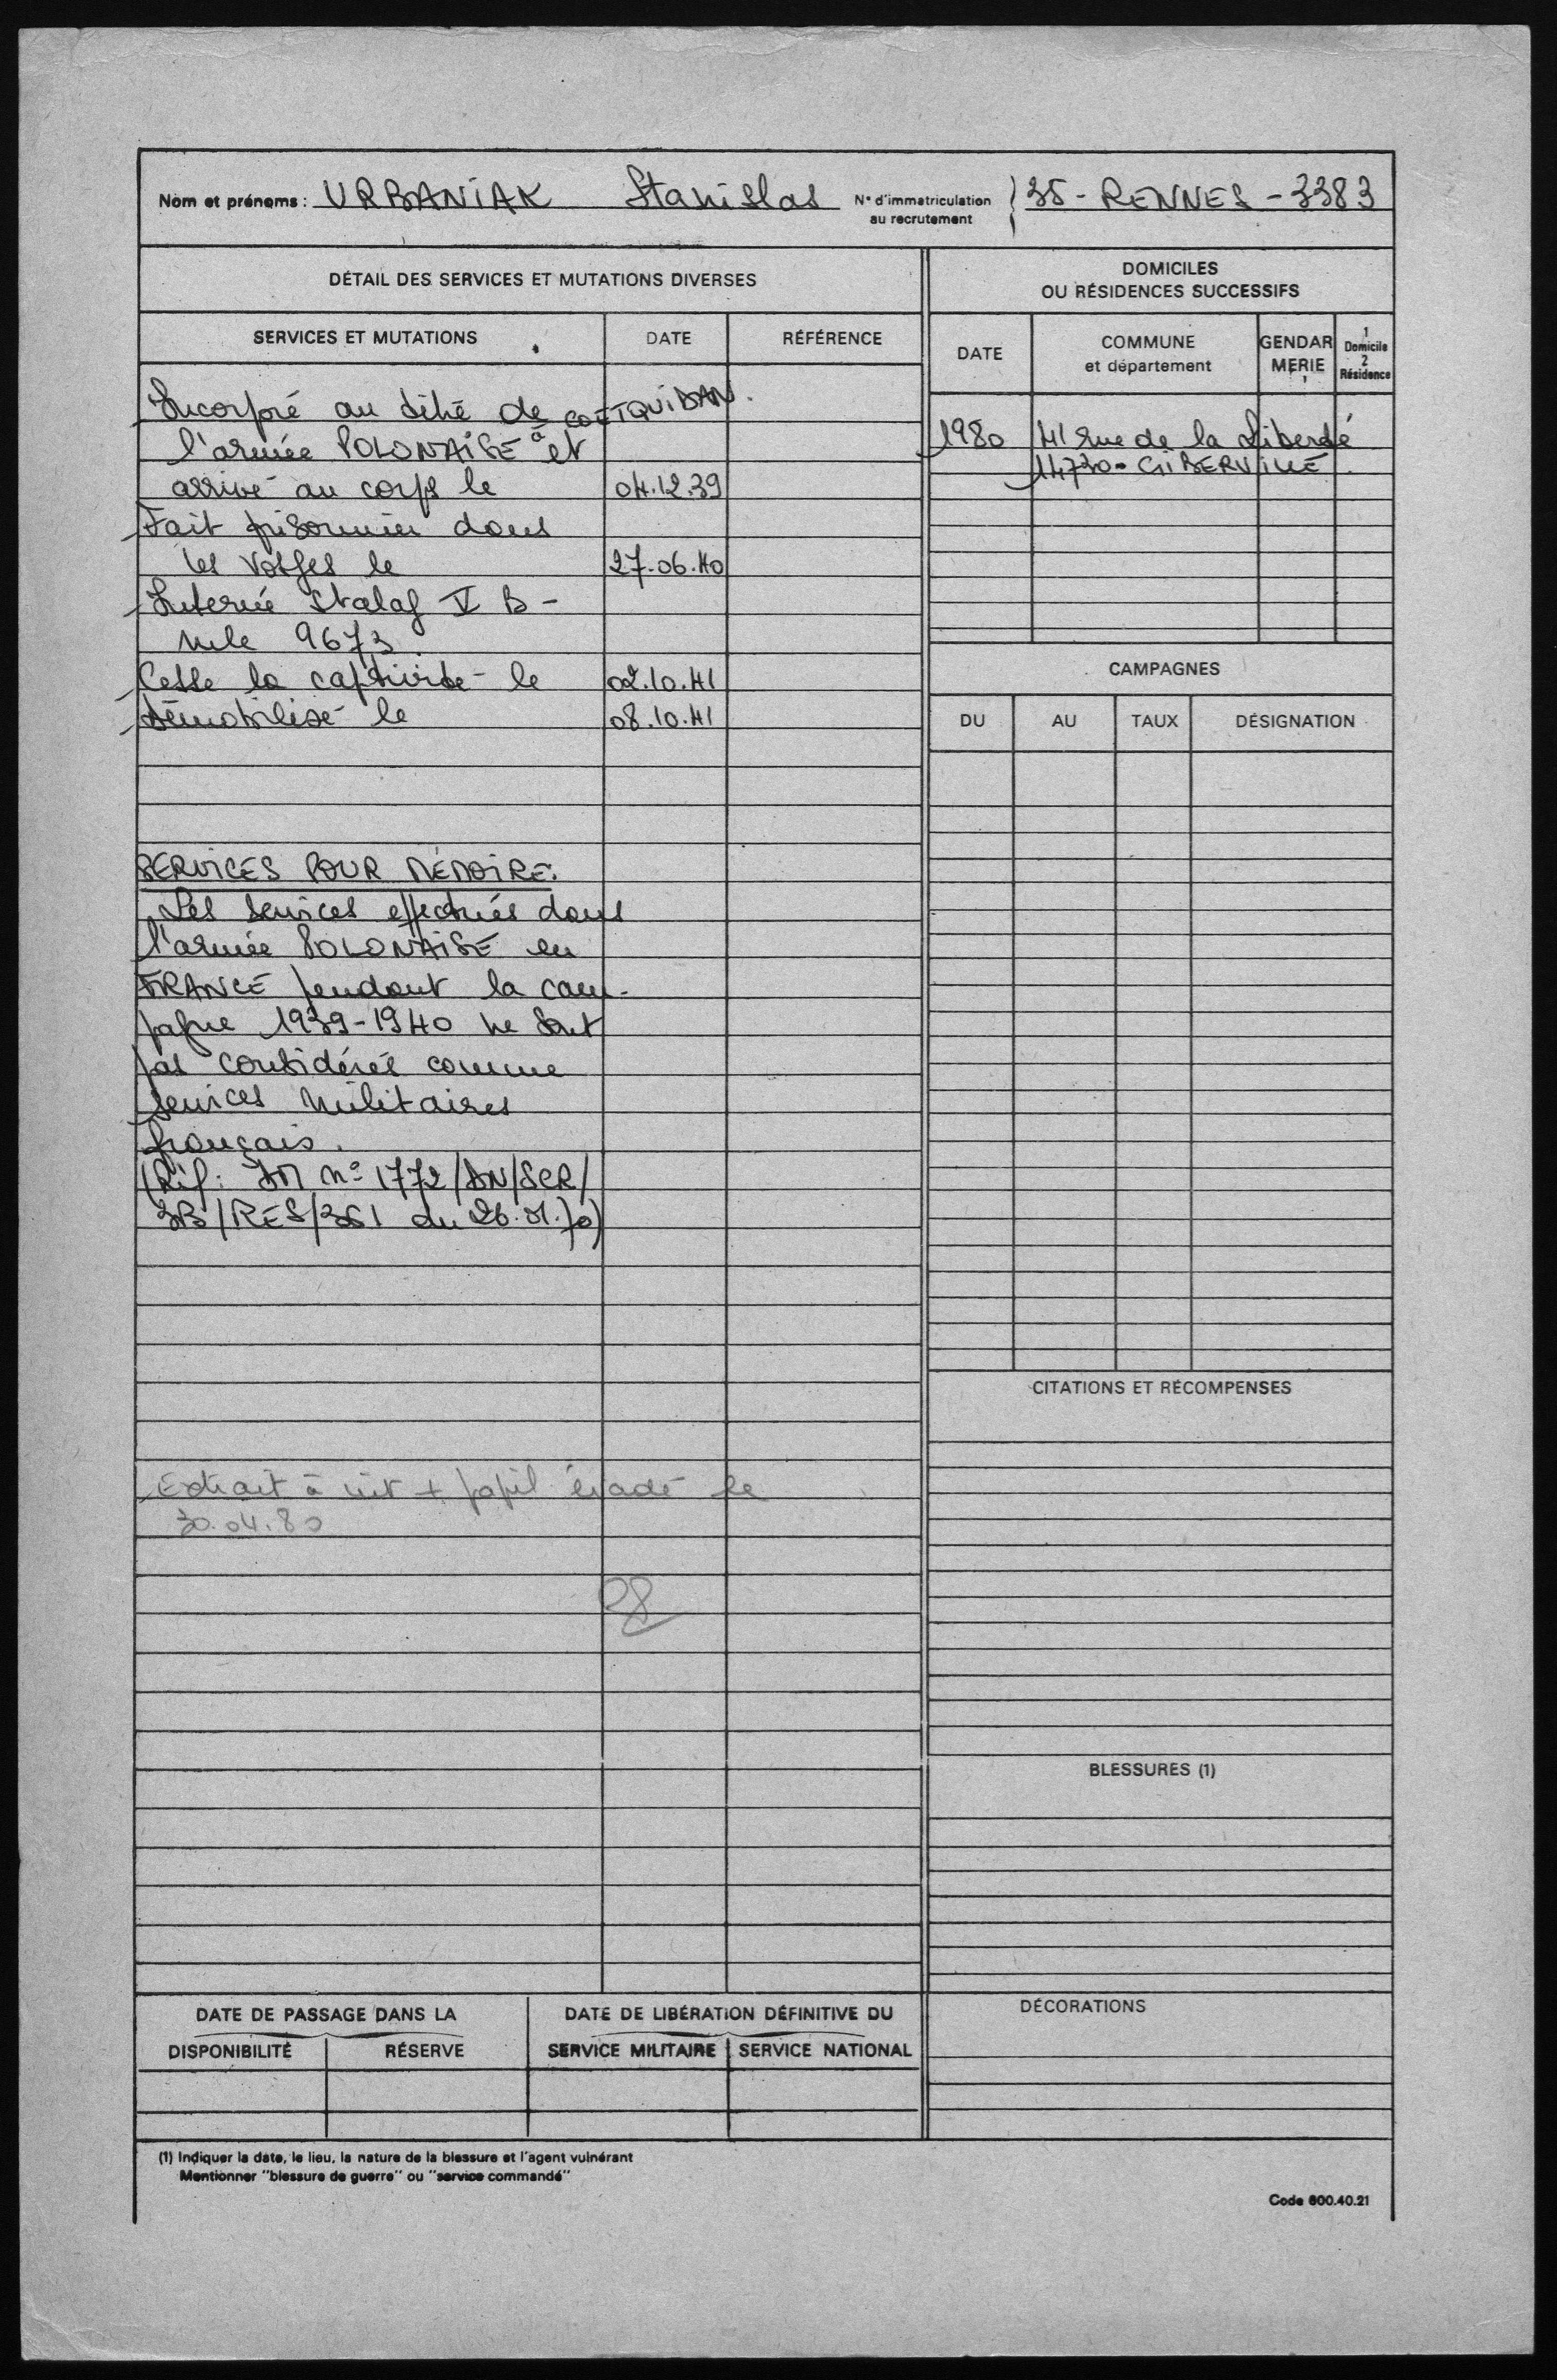 Nom et prénoms : URBANIAK Stanislas N° d'immatriculation au recrutement 35 - RENNES - 3383
DÉTAIL DES SERVICES ET MUTATIONS DIVERSES
SERVICES ET MUTATIONS DATE RÉFÉRENCE
Incorporé au dépôt de
l'armée POLONAISE à COËTQUIDAN. et
arrivé au corps le 04.12.39
Fait prisonnier dans
les Vosges le 27.06.40
Interné Stalag V B -
mle 9673.
Cesse la captivité le 02.10.41
Démobilisé le 08.10.41
SERVICES POUR MÉMOIRE.
Les services effectués dans
l'armée POLONAISE en
FRANCE pendant la cam-
pagne 1939-1940 ne sont
pas considérés comme
services militaires
français.
(Réf: DM n° 1772/DN/SCR/
3B/RES/361 du 26.01.70)
Extrait à + évadé le
30.04.80
DOMICILES
OU RÉSIDENCES SUCCESSIFS
DATE COMMUNE et département GENDARMERIE 1 Domicile 2 Résidence
1980 41 rue de la Liberté
14730 - GIBERVILLE
CAMPAGNES
DU AU TAUX DÉSIGNATION
CITATIONS ET RÉCOMPENSES
BLESSURES (1)
DÉCORATIONS
DATE DE PASSAGE DANS LA
DISPONIBILITÉ RÉSERVE
DATE DE LIBÉRATION DÉFINITIVE DU
SERVICE MILITAIRE SERVICE NATIONAL
(1) Indiquer la date, le lieu, la nature de la blessure et l'agent vulnérant
Mentionner "blessure de guerre" ou "service commandé"
Code 600.40.21